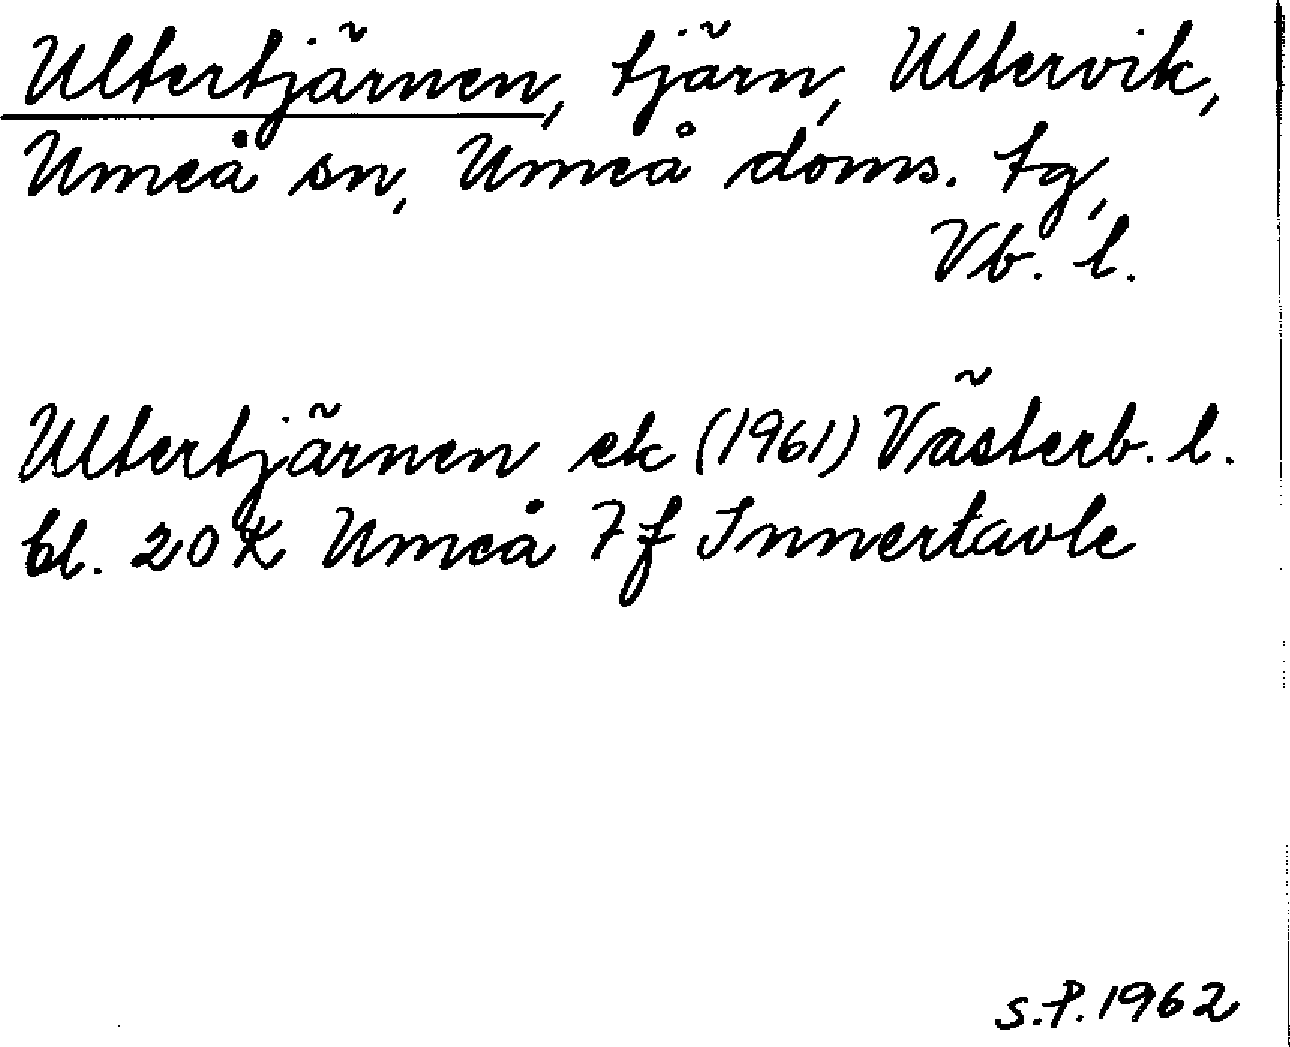 Ultertjärnen, tjärn, Ultervik,
Umeå sn, Umeå doms. tg,
Vb. l.
Ultertjärnen ek (1961) Västerb. l.
bl. 20 K Umeå 7f Innertavle
S.P. 1962